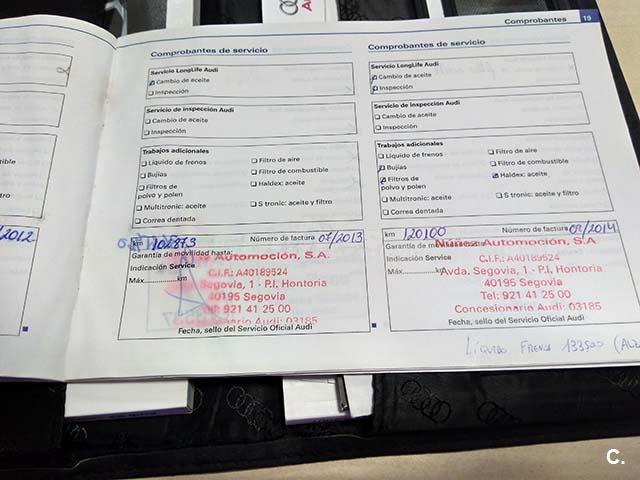 Comprobantes
19
tible
tro
/2012
Comprobantes de servicio
Servicio LongLife Audi
Cambio de aceite
Inspección
Servicio de inspección Audi
Cambio de aceite
Inspección
Trabajos adicionales
Líquido de frenos
Filtro de aire
Bujías
Filtro de combustible
Filtros de
polvo y polen
Haldex: aceite
Multitronic: aceite
S tronic: aceite y filtro
Correa dentada
km 102873 Número de factura 07/2013
Garantía de movilidad hasta:
Automoción, S.A.
Indicación Service
C.I.F.: A40189524
Máx. km
Segovia, 1 - P.I. Hontoria
40195 Segovia
921 41 25 00
Concesionario Audi: 03185
Fecha, sello del Servicio Oficial Audi
Comprobantes de servicio
Servicio LongLife Audi
Cambio de aceite
Inspección
Servicio de inspección Audi
Cambio de aceite
Inspección
Trabajos adicionales
Líquido de frenos
Filtro de aire
Bujías
Filtro de combustible
Filtros de
polvo y polen
Haldex: aceite
Multitronic: aceite
S tronic: aceite y filtro
Correa dentada
km 120100 Número de factura 02/2014
Garantía de
Núñez Automoción, S.A.
Indicación Service
C.I.F.: A40189524
Máx. km
Avda. Segovia, 1 - P.I. Hontoria
40195 Segovia
Tel: 921 41 25 00
Concesionario Audi: 03185
Fecha, sello del Servicio Oficial Audi
Líquido Frenos 133500
C.